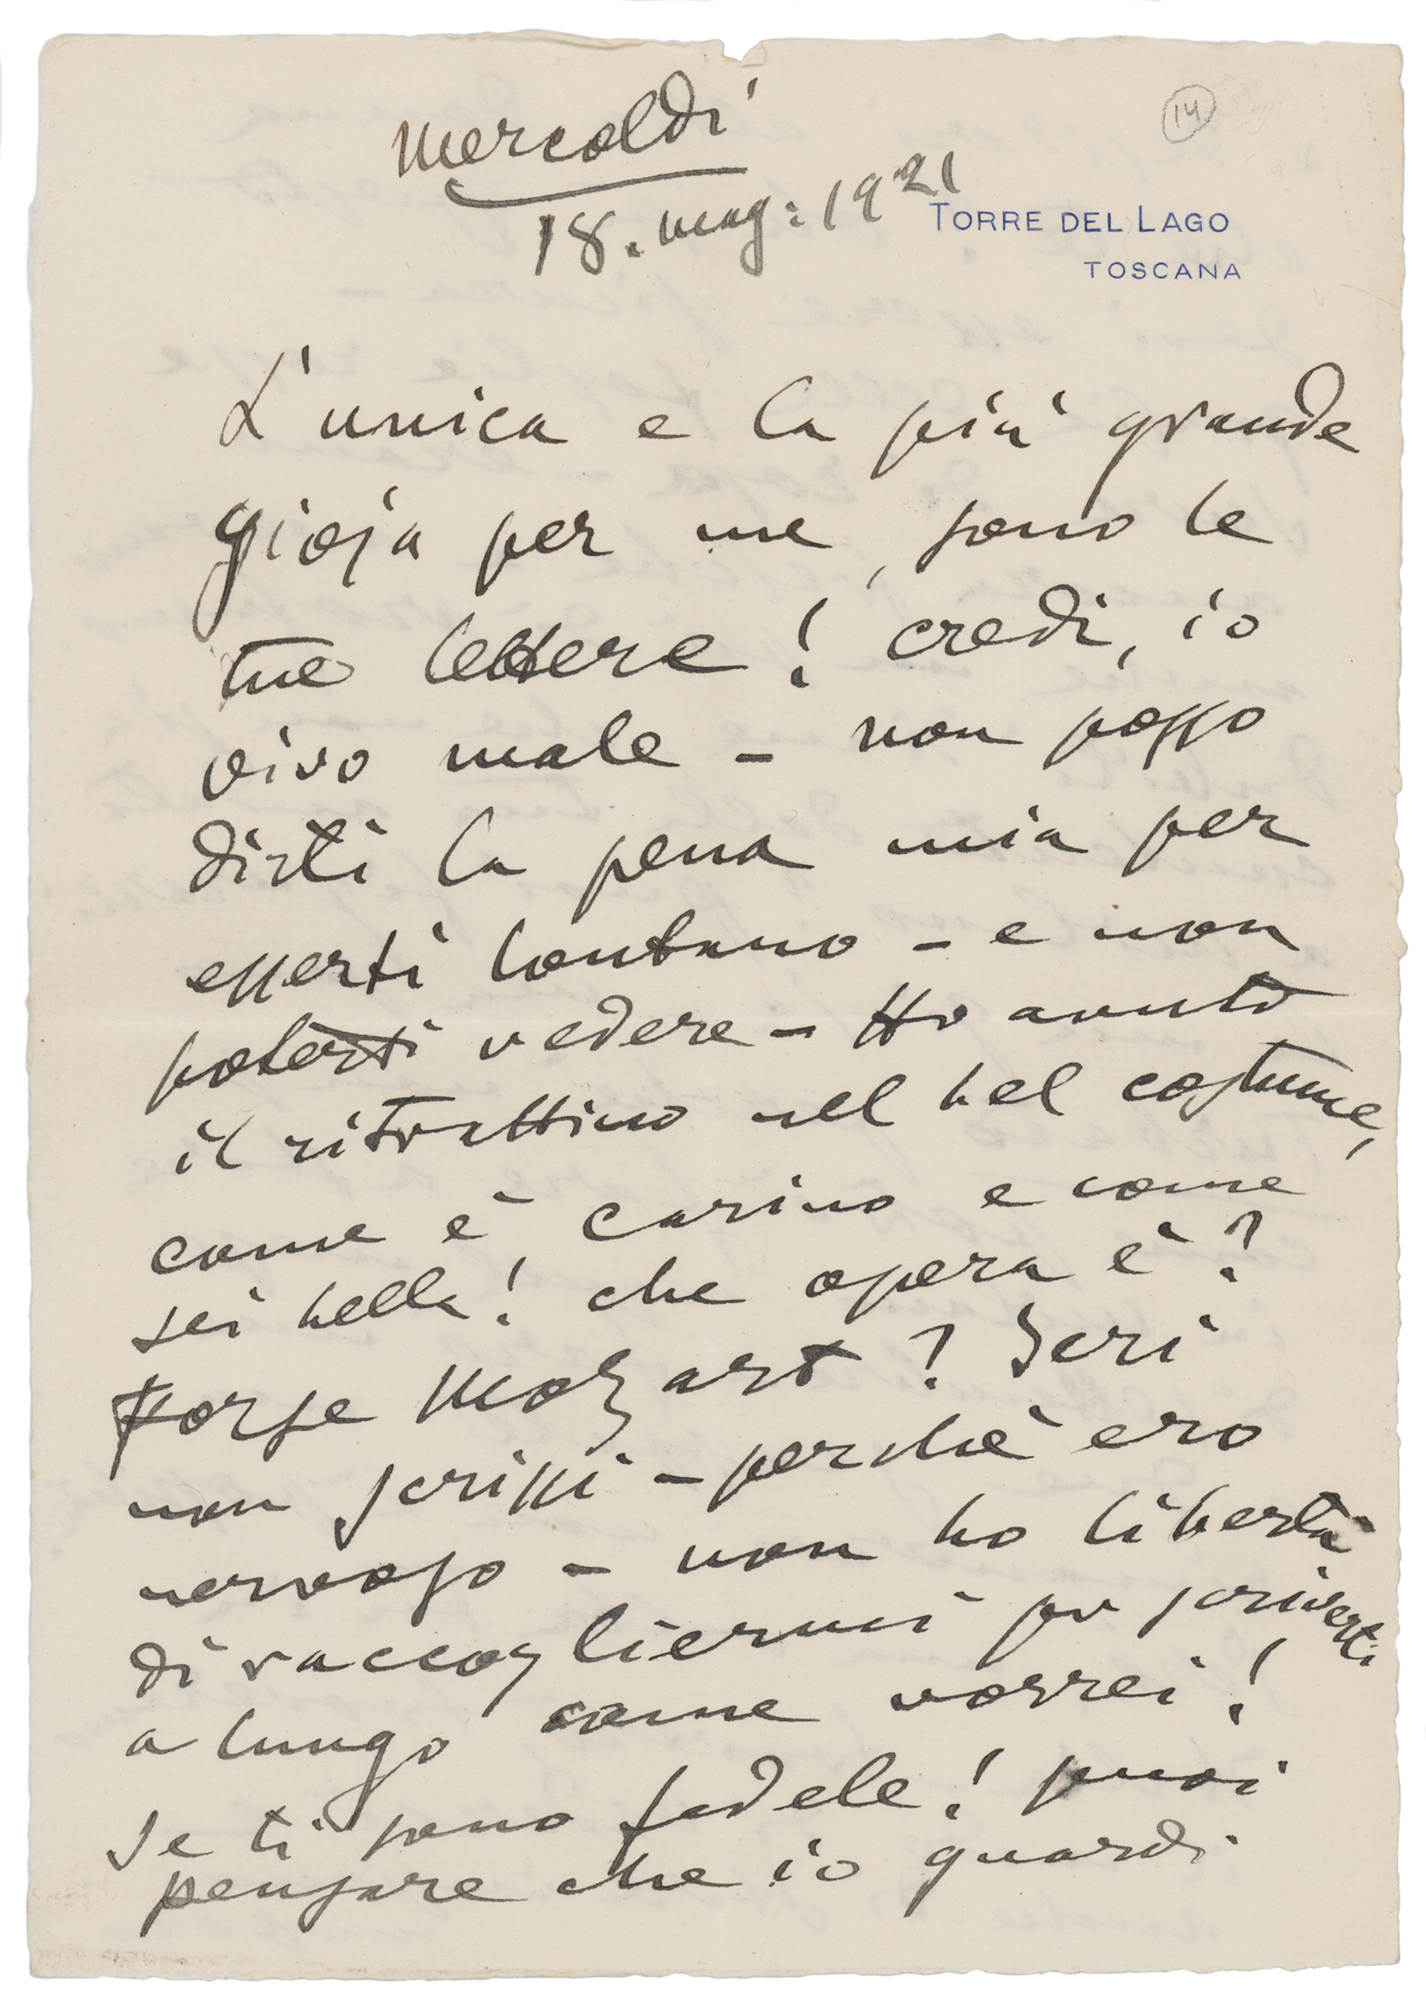 14
Mercoldì
18. mag: 1921
TORRE DEL LAGO
TOSCANA
L'unica e la più grande
gioja per me, sono le
tue lettere! credi, io
vivo male - non posso
dirti la pena mia per
esserti lontano - e non
poterti vedere - Ho avuto
il ritrattino nel bel costume,
come è carino e come
sei bella! che opera è?
Forse Mozart? Ieri
non scrissi - perchè ero
nervoso - non ho libertà
di raccogliermi per scriverti
a lungo come vorrei!
Se ti sono fedele! puoi
pensare che io guardi